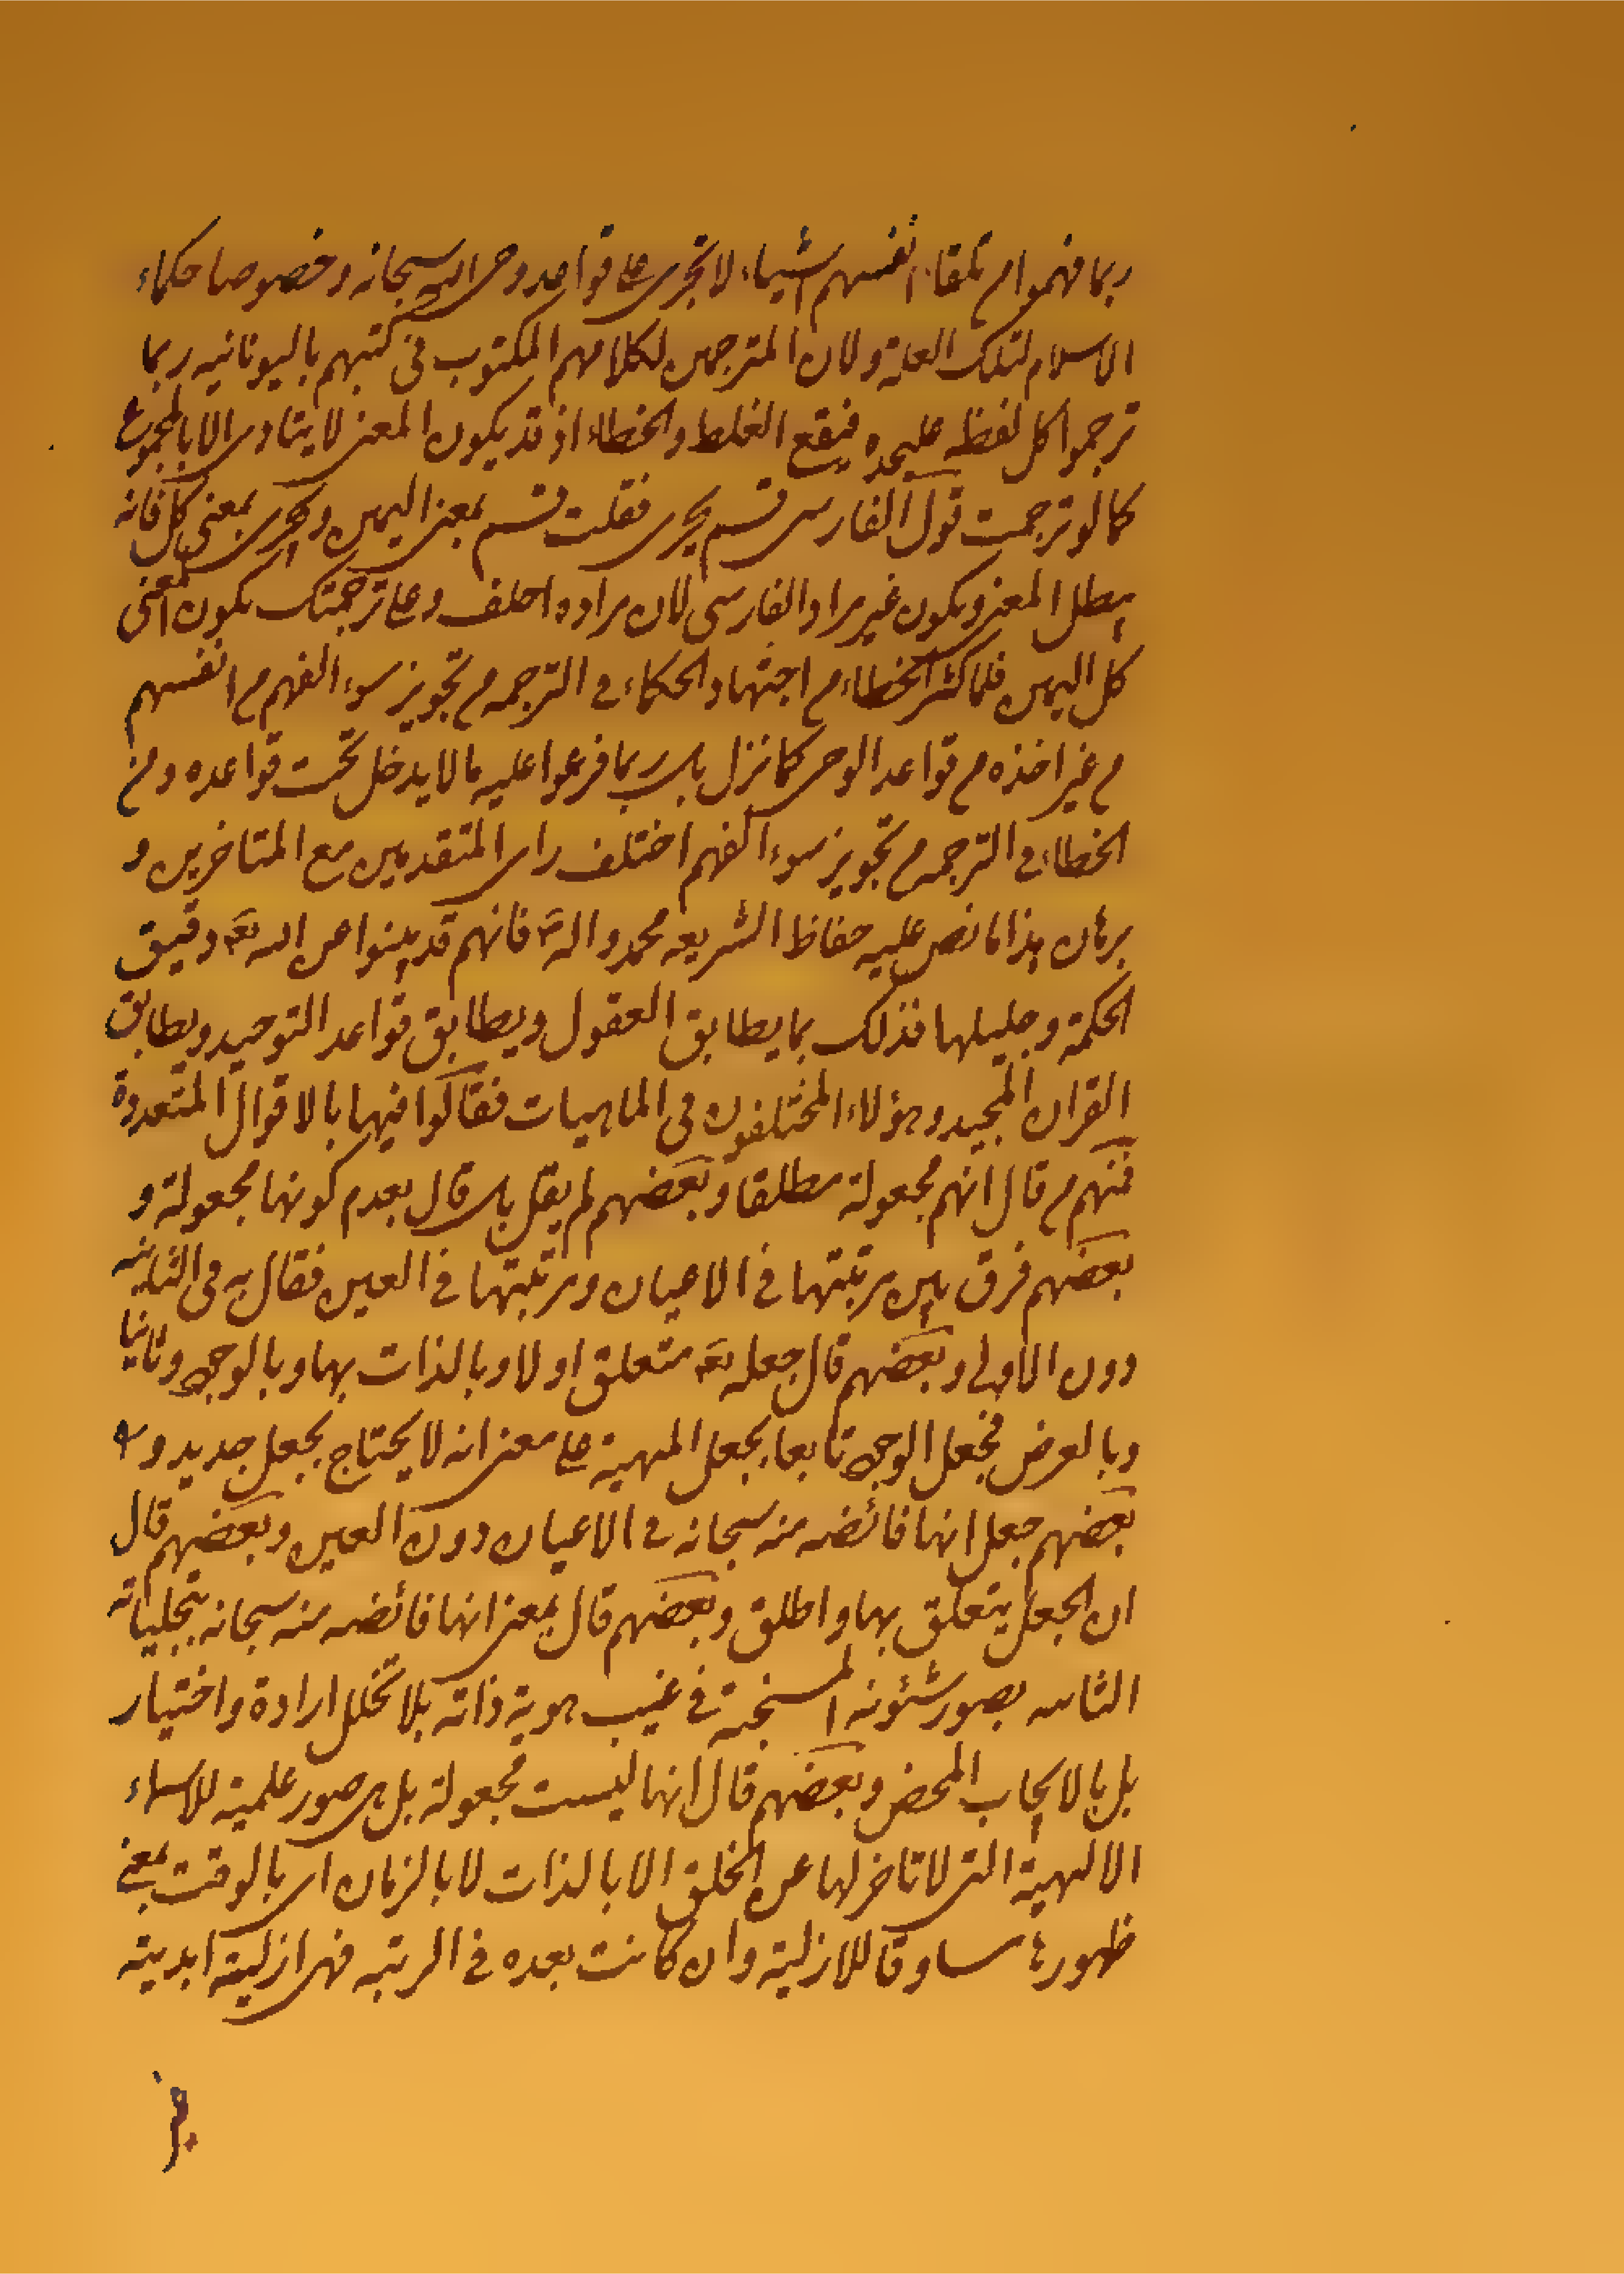 ربما فهموا من تلقاء انفسهم اشياء لا تجری علی قواعد وحی الله سبحانه وخصوصا حکماء
الاسلام لتلک العلة ولان المترجمین لکلامهم المکتوب فی کتبهم بالیونانیه ربما
ترجموا کل لفظه علیحده فیقع الغلط والخطاء اذ قد یکون المعنی لا یتادی الا بالمجموع
کما لو ترجمت قول الفارسی قسم بخری فقلت قسم بمعنی الیمین وبخری بمعنی کل فانه
یبطل المعنی ویکون غیر مراد الفارسی لان مراده احلف وعلی ترجمتک یکون المعنی
کل الیمین فلما کثر الخطاء من اجتهاد الحکماء فی الترجمه من تجویز سوء الفهم من انفسهم
من غیر اخذه من قواعد الوحی کما نزل بل ربما فرعوا علیه ما لا یدخل تحت قواعده ومن
الخطاء فی الترجمه من تجویز سوء الفهم اختلف رای المتقدمین مع المتاخرین و
برهان هذا ما نص علیه حفاظ الشریعه محمد واله فانهم قد بینوا عن الله تع دقیق
الحکمة وجلیلها فذلک بما یطابق العقول ویطابق قواعد التوحید ویطابق
القران المجید وهؤلاء المختلفون فی الماهیات فقالوا فیها بالاقوال المتعددة
فمنهم من قال انهم مجعولة مطلقا وبعضهم لم یقل بل قال بعدم کونها مجعولة و
بعضهم فرق بین مرتبتها فی الاعیان ومرتبتها فی العین فقال به فی الثانیه
دون الاولی وبعضهم قال جعله تع متعلق اولا وبالذات بها وبالوجود ثانیا
وبالعرض فجعل الوجود تابعا بجعل المهیة علی معنی انه لا یحتاج بجعل جدید و
بعضهم جعل انها فائضه منه سبحانه فی الاعیان دون العین وبعضهم قال
ان الجعل یتعلق بها واطلق وبعضهم قال بمعنی انها فائضه منه سبحانه بتجلیاته
الثانیه بصور شئونه المستجنة فی غیب هویة ذاته بلا تخلل ارادة واختیار
بل بالایجاب المحض وبعضهم قال انها لیست مجعولة بل هی صور علمیة للاسماء
الالهیة التی لا تاخر لها عن الخلق الا بالذات لا بالزمان ای بالوقت بمعنی
ظهورها مساوقا للازلیة وان کانت بعده فی الرتبه فهی ازلیة ابدیة